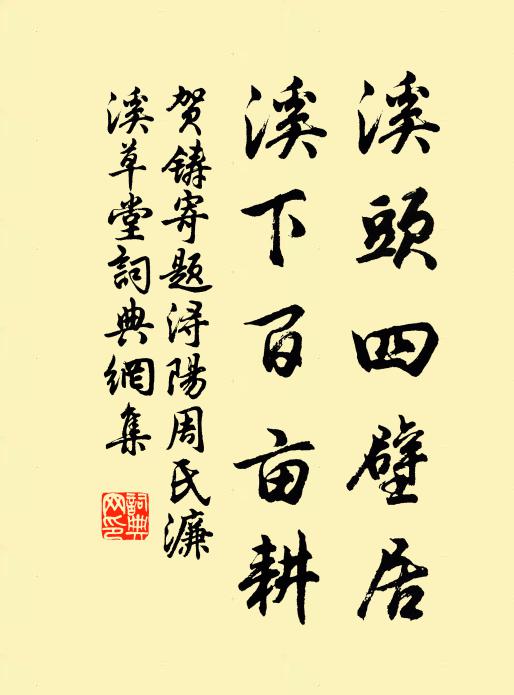 溪頭四壁居
溪下百亩耕
贺鑄寄题浔陽周民濂
溪草堂詞典網集
詞典网印